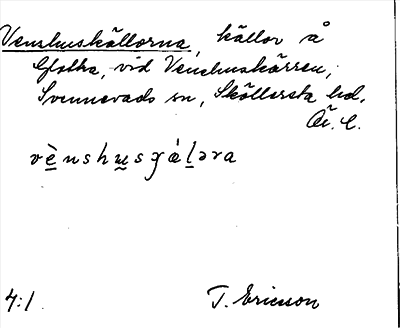 Venshuskällorna, källor å
vid Venshuskärren,
Svennevads sn, Sköllersta hd.
Ör. l.
vènshu̲sɣǽl̲əra
4:1 T. Ericsson